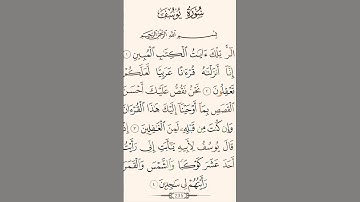 سُورَةُ يُوسُفَ
بِسْمِ اللَّهِ الرَّحْمَٰنِ الرَّحِيمِ
الٓر ۚ تِلْكَ ءَايَٰتُ ٱلْكِتَٰبِ ٱلْمُبِينِ ١
إِنَّآ أَنزَلْنَٰهُ قُرْءَٰنًا عَرَبِيًّا لَّعَلَّكُمْ
تَعْقِلُونَ ٢ نَحْنُ نَقُصُّ عَلَيْكَ أَحْسَنَ
ٱلْقَصَصِ بِمَآ أَوْحَيْنَآ إِلَيْكَ هَٰذَا ٱلْقُرْءَانَ
وَإِن كُنتَ مِن قَبْلِهِۦ لَمِنَ ٱلْغَٰفِلِينَ ٣ إِذْ
قَالَ يُوسُفُ لِأَبِيهِ يَٰٓأَبَتِ إِنِّى رَأَيْتُ
أَحَدَ عَشَرَ كَوْكَبًا وَٱلشَّمْسَ وَٱلْقَمَرَ
رَأَيْتُهُمْ لِى سَٰجِدِينَ ٤